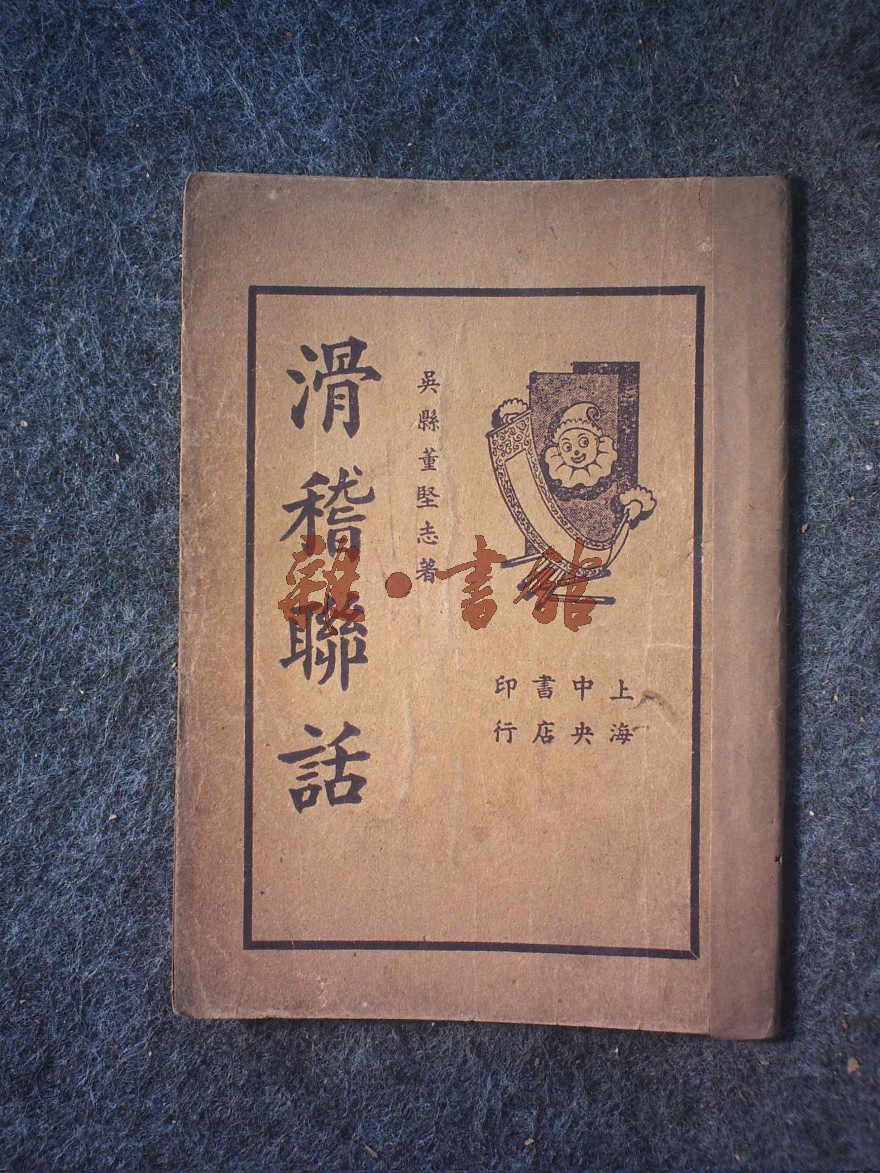 上海
中央
書店
印行
吳縣董堅志著
滑稽聯話
·書館